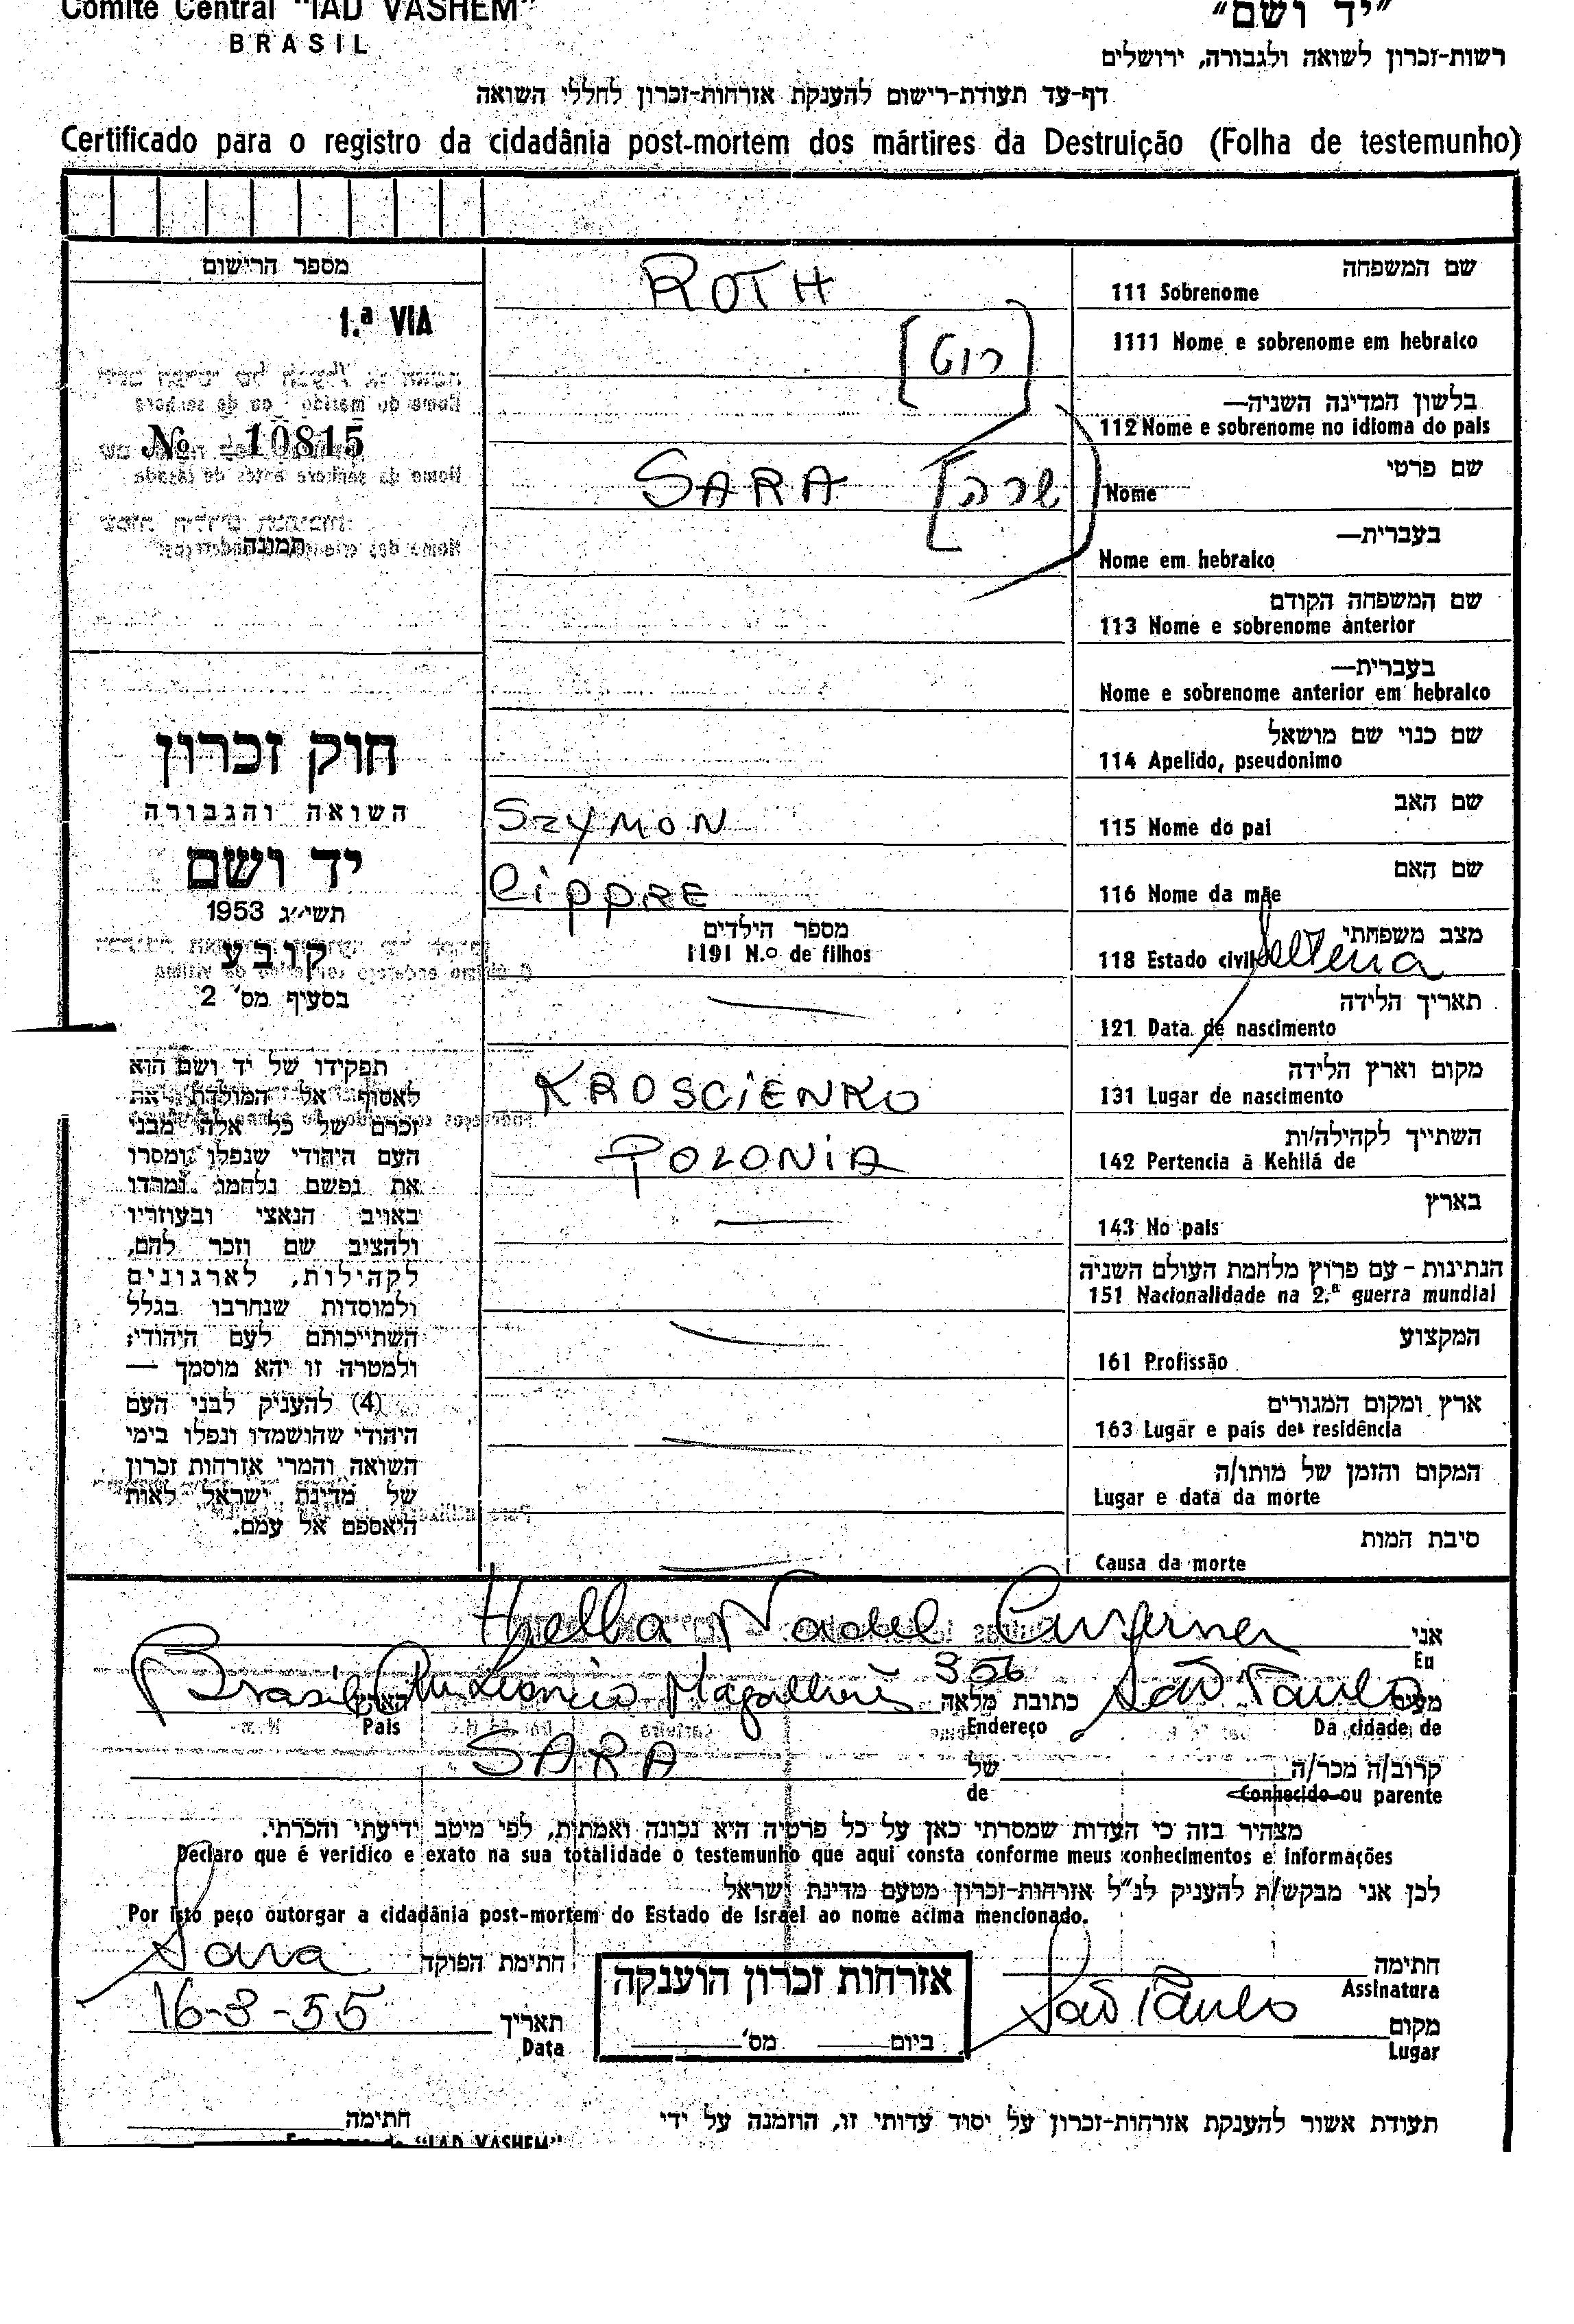 Comité Central "IAD VASHEM"
BRASIL
"יד ושם"
רשות-זכרון לשואה ולגבורה, ירושלים
דף-עד תעודת-רישום להענקת אזרחות-זכרון לחללי השואה
Certificado para o registro da cidadânia post-mortem dos mártires da Destruição (Folha de testemunho)
מספר הרישום
1.ª VIA
№ 10815
תמונה
חוק זכרון
השואה והגבורה
יד ושם
תשי"ג 1953
קובע
בסעיף מס' 2
תפקידו של יד ושם הוא
לאסוף אל המולדת את
זכרם של כל אלה מבני
העם היהודי שנפלו ומסרו
את נפשם נלחמו ומרדו
באויב הנאצי ובעוזריו
ולהציב שם וזכר להם,
לקהילות, לארגונים
ולמוסדות שנחרבו בגלל
השתייכותם לעם היהודי;
ולמטרה זו יהא מוסמך —
(4) להעניק לבני העם
היהודי שהושמדו ונפלו בימי
השואה והמרי אזרחות זכרון
של מדינת ישראל לאות
היאספם אל עמם.
שם המשפחה
111 Sobrenome ROTH
1111 Nome e sobrenome em hebraico [רוט]
בלשון המדינה השניה—
112 Nome e sobrenome no idioma do pais
שם פרטי
Nome SARA [שרה]
בעברית—
Nome em hebraico
שם המשפחה הקודם
113 Nome e sobrenome anterior
בעברית—
Nome e sobrenome anterior em hebraico
שם כנוי שם מושאל
114 Apelido, pseudonimo
שם האב
115 Nome do pai SZYMON
שם האם
116 Nome da mãe CIPPRE
מצב משפחתי
118 Estado civil Solteira
מספר הילדים
1191 N.º de filhos
תאריך הלידה
121 Data de nascimento
מקום וארץ הלידה
131 Lugar de nascimento KROSCIENKO
השתייך לקהילה/ות
142 Pertencia à Kehilá de POLONIA
בארץ
143 No pais
הנתינות - עם פרוץ מלחמת העולם השניה
151 Nacionalidade na 2.ª guerra mundial
המקצוע
161 Profissão
ארץ ומקום המגורים
163 Lugar e país de residência
המקום והזמן של מותו/ה
Lugar e data da morte
סיבת המות
Causa da morte
אני
Eu Hella Nadel
מעיר
Da cidade de São Paulo
כתובת מלאה
Endereço Leoncio Magalhães 356
הארץ
Pais Brasil
קרוב/ה מכר/ה
Conhecido ou parente
של
de SARA
מצהיר בזה כי העדות שמסרתי כאן על כל פרטיה היא נכונה ואמתית, לפי מיטב ידיעתי והכרתי.
Declaro que é verídico e exato na sua totalidade o testemunho que aqui consta conforme meus conhecimentos e informações
לכן אני מבקש/ת להעניק לנ"ל אזרחות-זכרון מטעם מדינת ישראל
Por isto peço outorgar a cidadânia post-mortem do Estado de Israel ao nome acima mencionado.
חתימה
Assinatura
חתימת הפוקד Sara
מקום
Lugar São Paulo
אזרחות זכרון הוענקה
ביום מס'
תאריך
Data 16-8-55
תעודת אשור להענקת אזרחות-זכרון על יסוד עדותי זו, הוזמנה על ידי
חתימה
"IAD VASHEM"